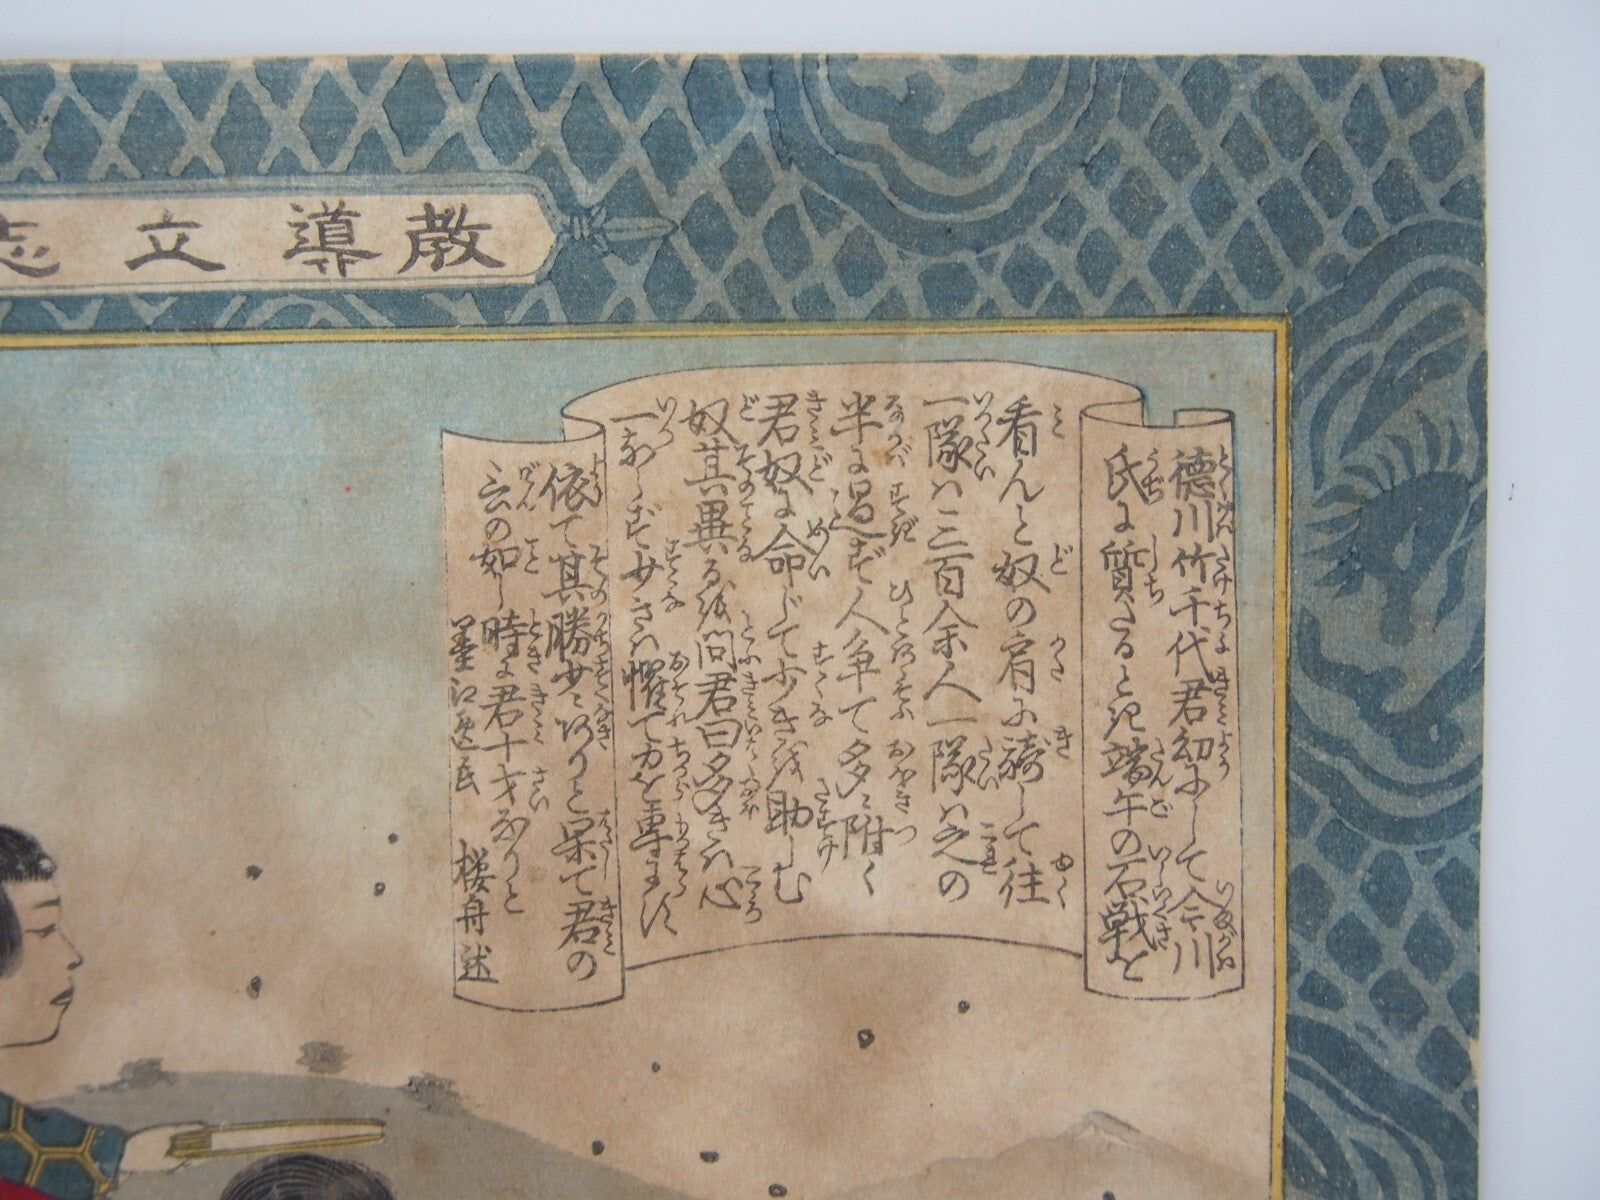 教導立志
徳川竹千代君幼にして今川
氏に質たるとき端午の石戦を
看んと奴の肩に騎して往
一隊ハ三百余人一隊ハ之の
半に過ず人争て多に附く
君奴に命じて少きを助しむ
奴其異る
問君曰多きハ心
一ならず少きハ懼て力を専にす
依て其勝少にありと果て君の
云の如し時に君十才なりと
桜舟述